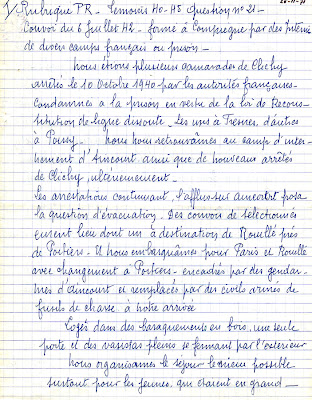 Rubrique PR - Témoins 40-45 Question n° 21 -
Convoi du 6 Juillet 42 - formé à Compiègne par des Internés
de divers camps français ou prison -
nous étions plusieurs camarades de Clichy
arrêtés le 10 Octobre 1940 par les autorités françaises -
condamnés à la prison en vertu de la loi de Recons-
titution de ligue dissoute. Les uns à Fresnes, d'autres
à Poissy. nous nous retrouvâmes au camp d'inter-
nement d'Aincourt ainsi que de nouveaux arrêtés
de Clichy, ultérieurement -
Les arrestations continuant, l'afflux sur Aincourt posa
la question d'évacuation. Des convois de sélectionnés
eurent lieu dont un à destination de Rouillé près
de Poitiers. nous embarquâmes pour Paris et Rouillé
avec changement à Poitiers - encadrés par des gendar-
mes d'Aincourt et remplacés par des civils armés de
fusils de chasse à notre arrivée
Logés dans des baraquements en bois, une seule
porte et des vasistas pleins se fermant par l'extérieur
nous organisâmes le séjour le mieux possible
surtout pour les jeunes, qui étaient en grand -